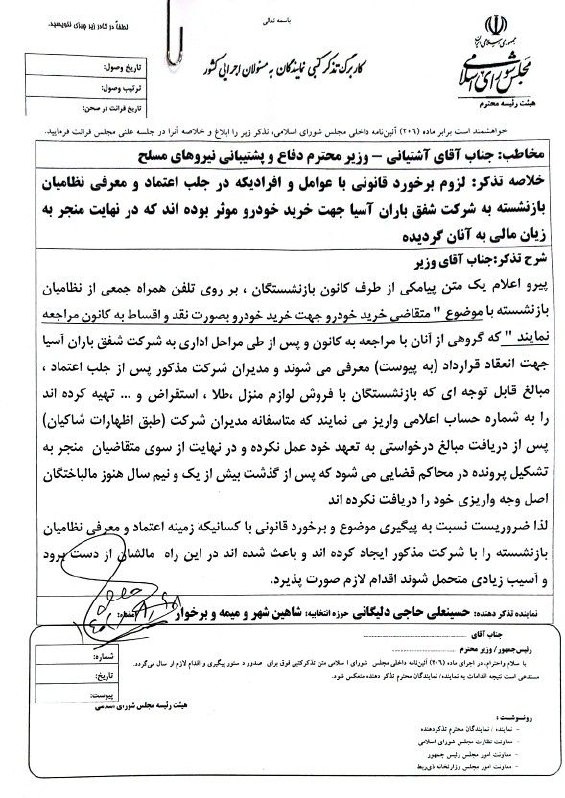 باسمه تعالی
لطفاً در کادر زیر چیزی ننویسید.
جمهوری اسلامی ایران
مجلس شورای اسلامی
هیئت رئیسه محترم
کاربرگ تذکر کتبی نمایندگان به مسئولان اجرایی کشور
تاریخ وصول:
ترتیب وصول:
تاریخ قرائت در صحن:
خواهشمند است برابر ماده (۲۰۶) آئین‌نامه داخلی مجلس شورای اسلامی، تذکر زیر را ابلاغ و خلاصه آنرا در جلسه علنی مجلس قرائت فرمایید.
مخاطب: جناب آقای آشتیانی – وزیر محترم دفاع و پشتیبانی نیروهای مسلح
خلاصه تذکر: لزوم برخورد قانونی با عوامل و افرادیکه در جلب اعتماد و معرفی نظامیان
بازنشسته به شرکت شفق باران آسیا جهت خرید خودرو موثر بوده اند که در نهایت منجر به
زیان مالی به آنان گردیده
شرح تذکر:جناب آقای وزیر
پیرو اعلام یک متن پیامکی از طرف کانون بازنشستگان ، بر روی تلفن همراه جمعی از نظامیان
بازنشسته با موضوع " متقاضی خرید خودرو جهت خرید خودرو بصورت نقد و اقساط به کانون مراجعه
نمایند " که گروهی از آنان با مراجعه به کانون و پس از طی مراحل اداری به شرکت شفق باران آسیا
جهت انعقاد قرارداد (به پیوست) معرفی می شوند و مدیران شرکت مذکور پس از جلب اعتماد ،
مبالغ قابل توجه ای که بازنشستگان با فروش لوازم منزل ،طلا ، استقراض و ... تهیه کرده اند
را به شماره حساب اعلامی واریز می نمایند که متاسفانه مدیران شرکت (طبق اظهارات شاکیان)
پس از دریافت مبالغ درخواستی به تعهد خود عمل نکرده و در نهایت از سوی متقاضیان منجر به
تشکیل پرونده در محاکم قضایی می شود که پس از گذشت بیش از یک و نیم سال هنوز مالباختگان
اصل وجه واریزی خود را دریافت نکرده اند
لذا ضروریست نسبت به پیگیری موضوع و برخورد قانونی با کسانیکه زمینه اعتماد و معرفی نظامیان
بازنشسته را با شرکت مذکور ایجاد کرده اند و باعث شده اند در این راه مالشان از دست برود
و آسیب زیادی متحمل شوند اقدام لازم صورت پذیرد.
نماینده تذکر دهنده: حسینعلی حاجی دلیگانی حوزه انتخابیه: شاهین شهر و میمه و برخوار امضاء:
جناب آقای
رئیس‌جمهور / وزیر محترم
با سلام واحترام، در اجرای ماده (۲۰۶) آئین‌نامه داخلی مجلس شورای اسلامی متن تذکرکتبی فوق برای صدور دستور پیگیری و اقدام لازم ارسال می‌گردد.
مستدعی است نتیجه اقدامات به نماینده/ نمایندگان محترم تذکر دهنده منعکس شود.
هیئت رئیسه مجلس شورای اسلامی
شماره:
تاریخ:
پیوست:
رونوشت:
– نماینده / نمایندگان محترم تذکردهنده
– معاونت نظارت مجلس شورای اسلامی
– معاونت امور مجلس رئیس جمهور
– معاونت امور مجلس وزارتخانه ذی‌ربط